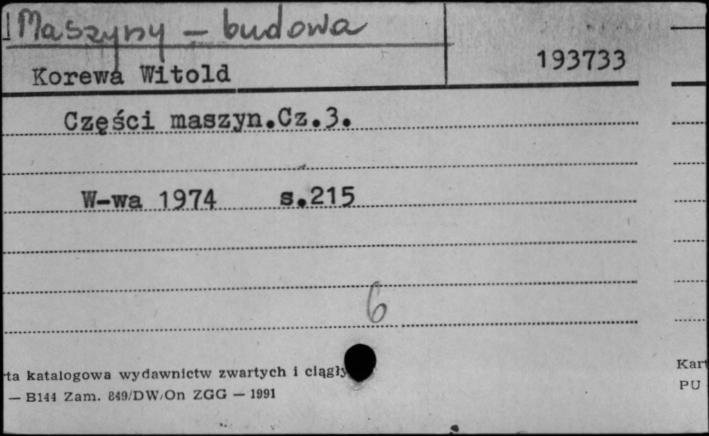 Maszyny – budowa
Korewa Witold
193733
Części maszyn.Cz.3.
W-wa 1974 s.215
6
rta katalogowa wydawnictw zwartych i ciągły
— B144 Zam. 849/DW/On ZGG — 1991
Kart
PU